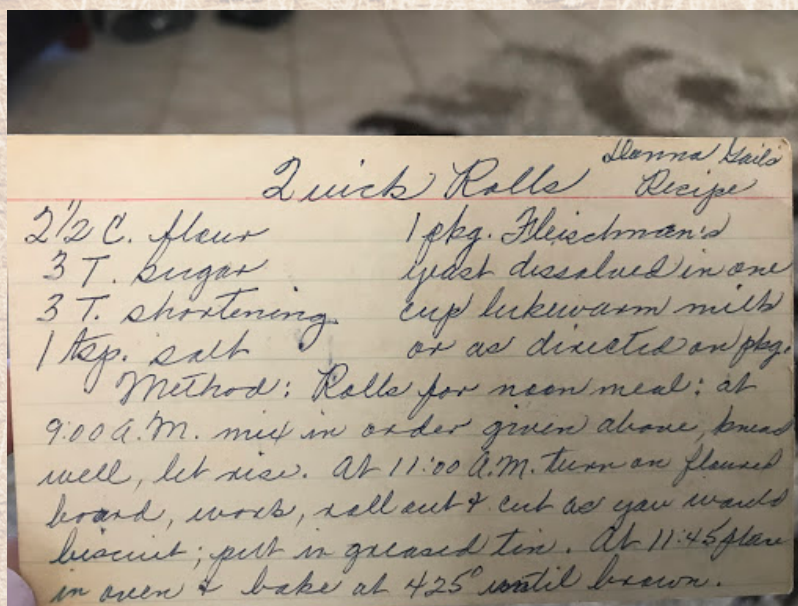 Donna Gail's
Quick Rolls Recipe
2 1/2 C. flour
3 T. sugar
3 T. shortening
1 tsp. salt
1 pkg. Fleischman's
yeast dissolved in one
cup lukewarm milk
or as directed on pkg.
Method: Rolls for noon meal: at
9:00 A.M. mix in order given above, knead
well, let rise. At 11:00 A.M. turn on floured
board, work, roll out & cut as you would
biscuit; put in greased tin. At 11:45 place
in oven & bake at 425° until brown.